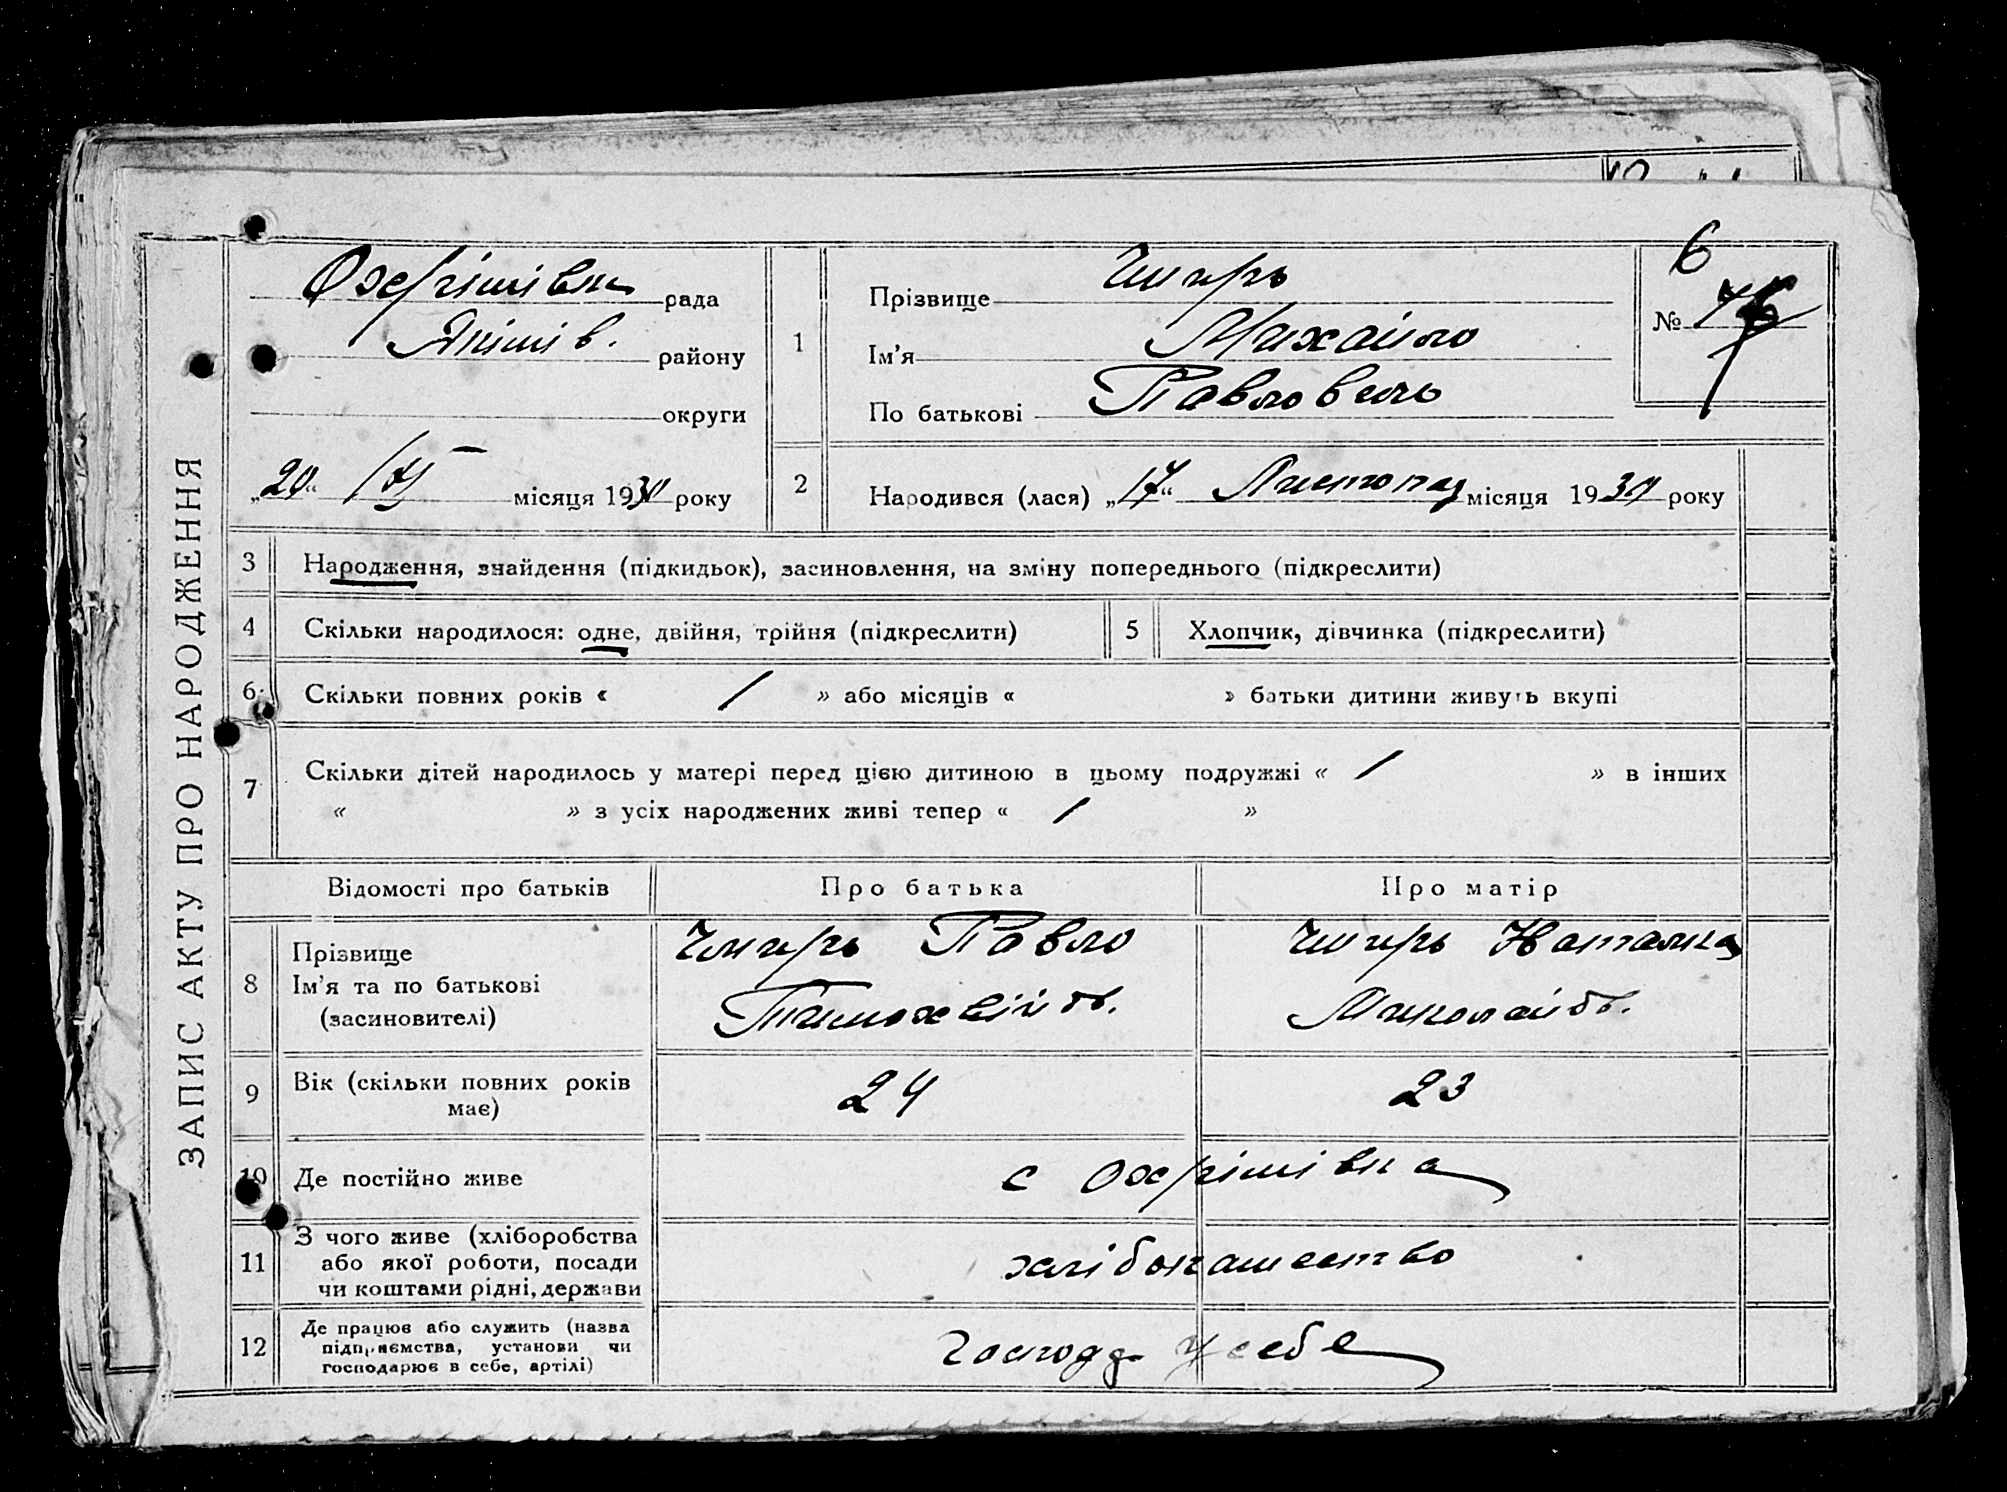 ЗАПИС АКТУ ПРО НАРОДЖЕННЯ
Охрімівка рада
Якимів. району
округи
„20“ місяця 1930 року
1
Прізвище Чмирь
Ім'я Михайло
По батькові Павлович
6
№
2
Народився (лася) „17“ Листопад місяця 1930 року
3 Народження, знайдення (підкидьок), засиновлення, на зміну попереднього (підкреслити)
4 Скільки народилося: одне, двійня, трійня (підкреслити) 5 Хлопчик, дівчинка (підкреслити)
6 Скільки повних років « / » або місяців « » батьки дитини живуть вкупі
7 Скільки дітей народилось у матері перед цією дитиною в цьому подружжі « / » в інших
« » з усіх народжених живі тепер « / »
Відомості про батьків Про батька Про матір
8 Прізвище
Ім'я та по батькові
(засиновителі)
Чмирь Павло
Тимохвійов.
Чмирь Наталка
Миколайов.
9 Вік (скільки повних років
має)
24 23
10 Де постійно живе с Охрімівка
11 З чого живе (хліборобства
або якої роботи, посади
чи коштами рідні, держави
хлібопашество
12 Де працює або служить (назва
підприємства, установи чи
господарює в себе, артілі)
Господ у себе